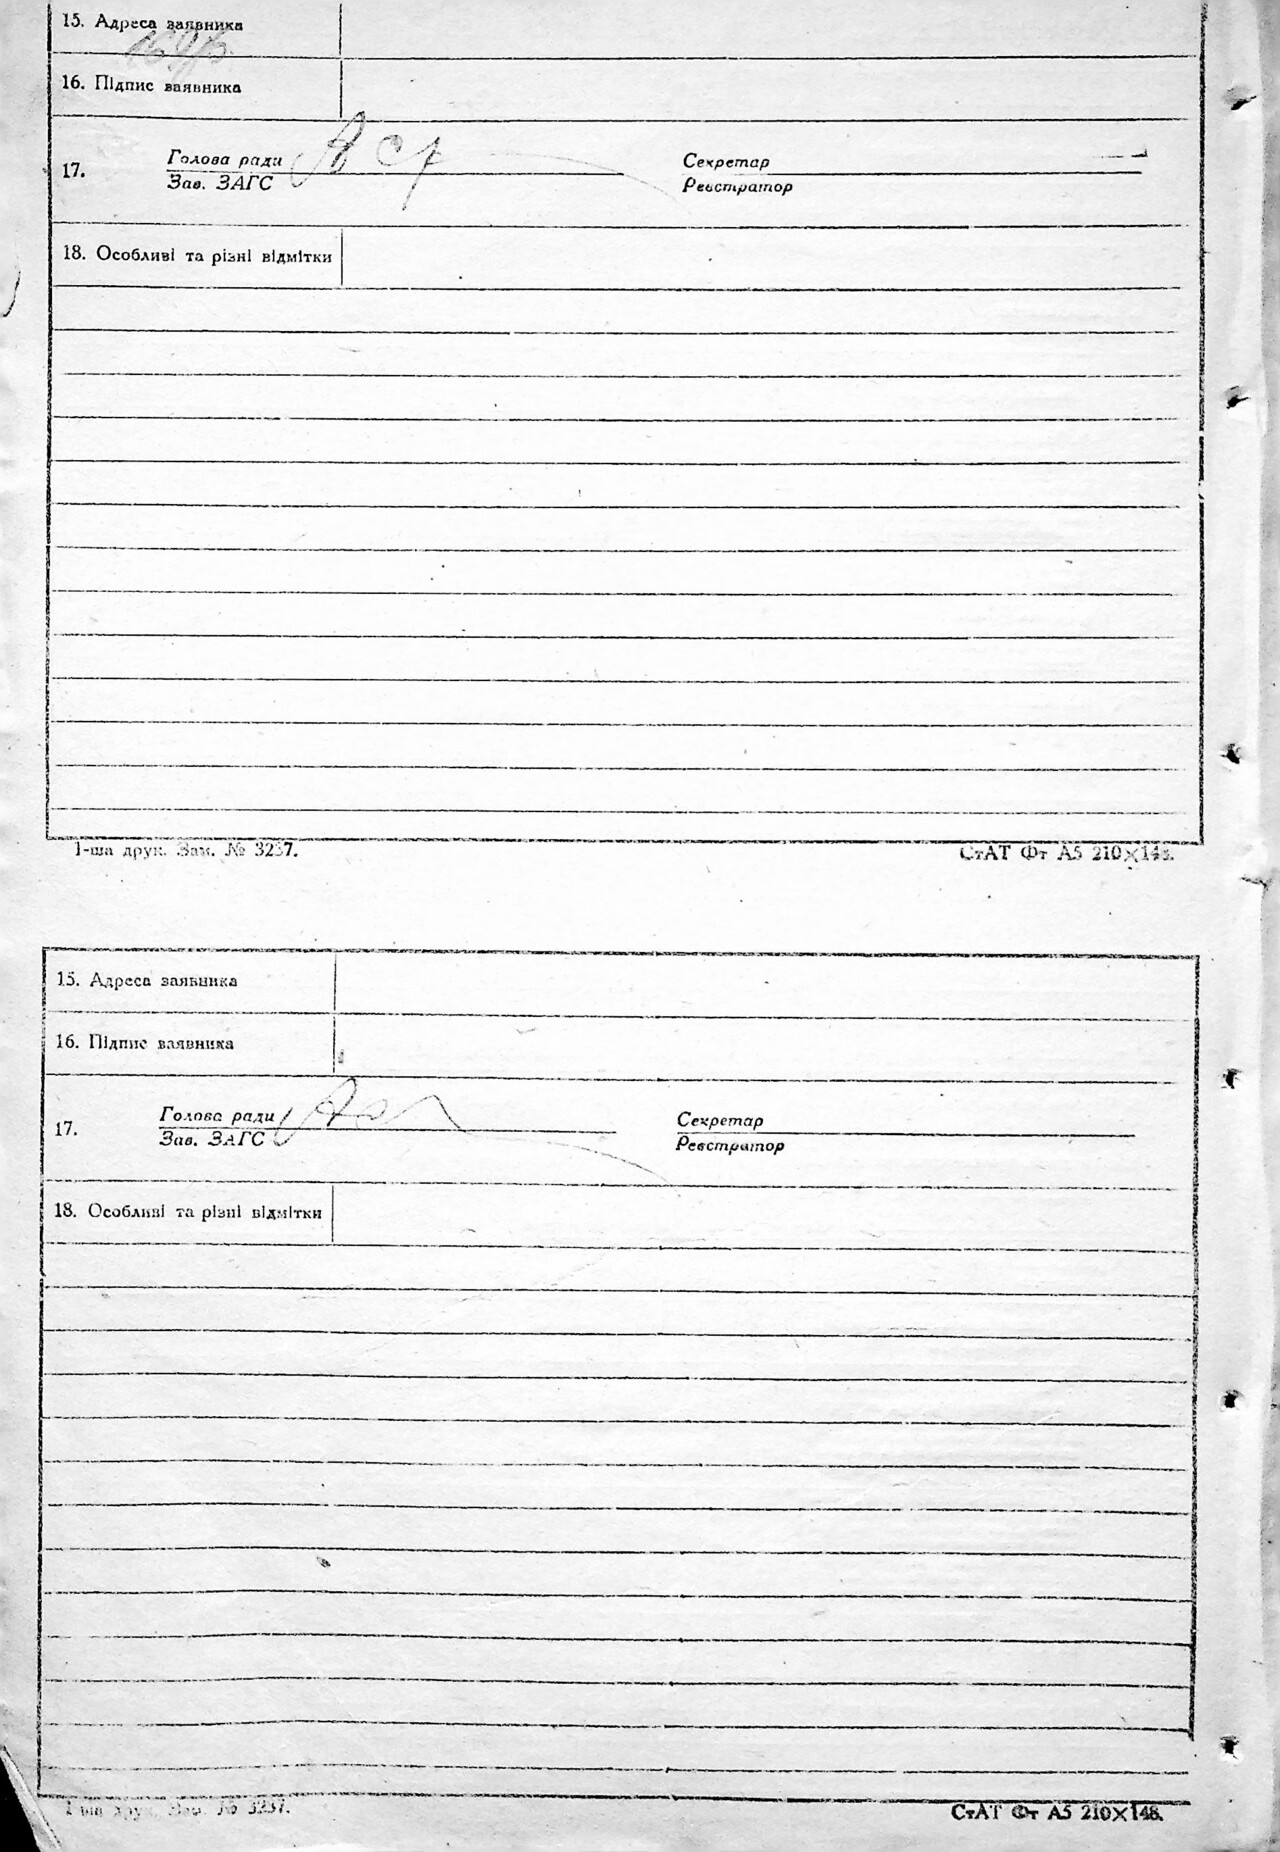 15. Адреса заявника
16. Підпис заявника
17.
Голова ради
Зав. ЗАГС
Секретар
Реєстратор
18. Особливі та різні відмітки
1-ша друк. Зам. № 3237.
СтАТ Фт А5 210×148.
15. Адреса заявника
16. Підпис заявника
17.
Голова ради
Зав. ЗАГС
Секретар
Реєстратор
18. Особливі та різні відмітки
1-ша друк. Зам. № 3237.
СтАТ Фт А5 210×148.